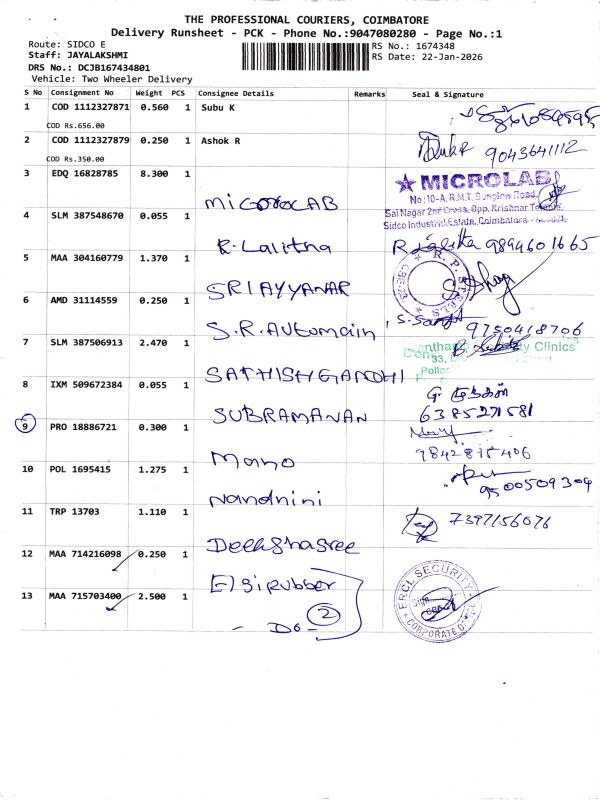 THE PROFESSIONAL COURIERS, COIMBATORE
Delivery Runsheet - PCK - Phone No.:9047080280 - Page No.:1
Route: SIDCO E
RS No.: 1674348
Staff: JAYALAKSHMI
RS Date: 22-Jan-2026
DRS No.: DCJB167434801
Vehicle: Two Wheeler Delivery
S No Consignment No Weight PCS Consignee Details Remarks Seal & Signature
1 COD 1112327871 0.560 1 Subu K
COD Rs.656.00
2 COD 1112327879 0.250 1 Ashok R 9043641112
COD Rs.350.00
3 EDQ 16828785 8.300 1 MICROLAB
MICROLAB
No:10-A, R.M.T. Bunglow Road,
Sai Nagar 2nd Cross, Opp. Krishnar Temple,
Sidco Industrial Estate, Coimbatore
4 SLM 387548670 0.055 1 R. Lalitha R Lalitha 9894601665
5 MAA 304160779 1.370 1 SRI AYYANAR
R. P. STEELS
CBE-23
6 AMD 31114559 0.250 1 S.R. Automain 9750418706
7 SLM 387506913 2.470 1 SATHISH GANDHI
Clinics
33,
Pollac
8 IXM 509672384 0.055 1 SUBRAMANAN
6385271581
9 PRO 18886721 0.300 1 Mano
9842875406
10 POL 1695415 1.275 1 Nandhini 9500509304
11 TRP 13703 1.110 1 Deekshasree 7397156076
12 MAA 714216098 0.250 1 Elgi Rubber
13 MAA 715703400 2.500 1 - Do - 2
ERCL SECURITY
Sign
CORPORATE OFFICE